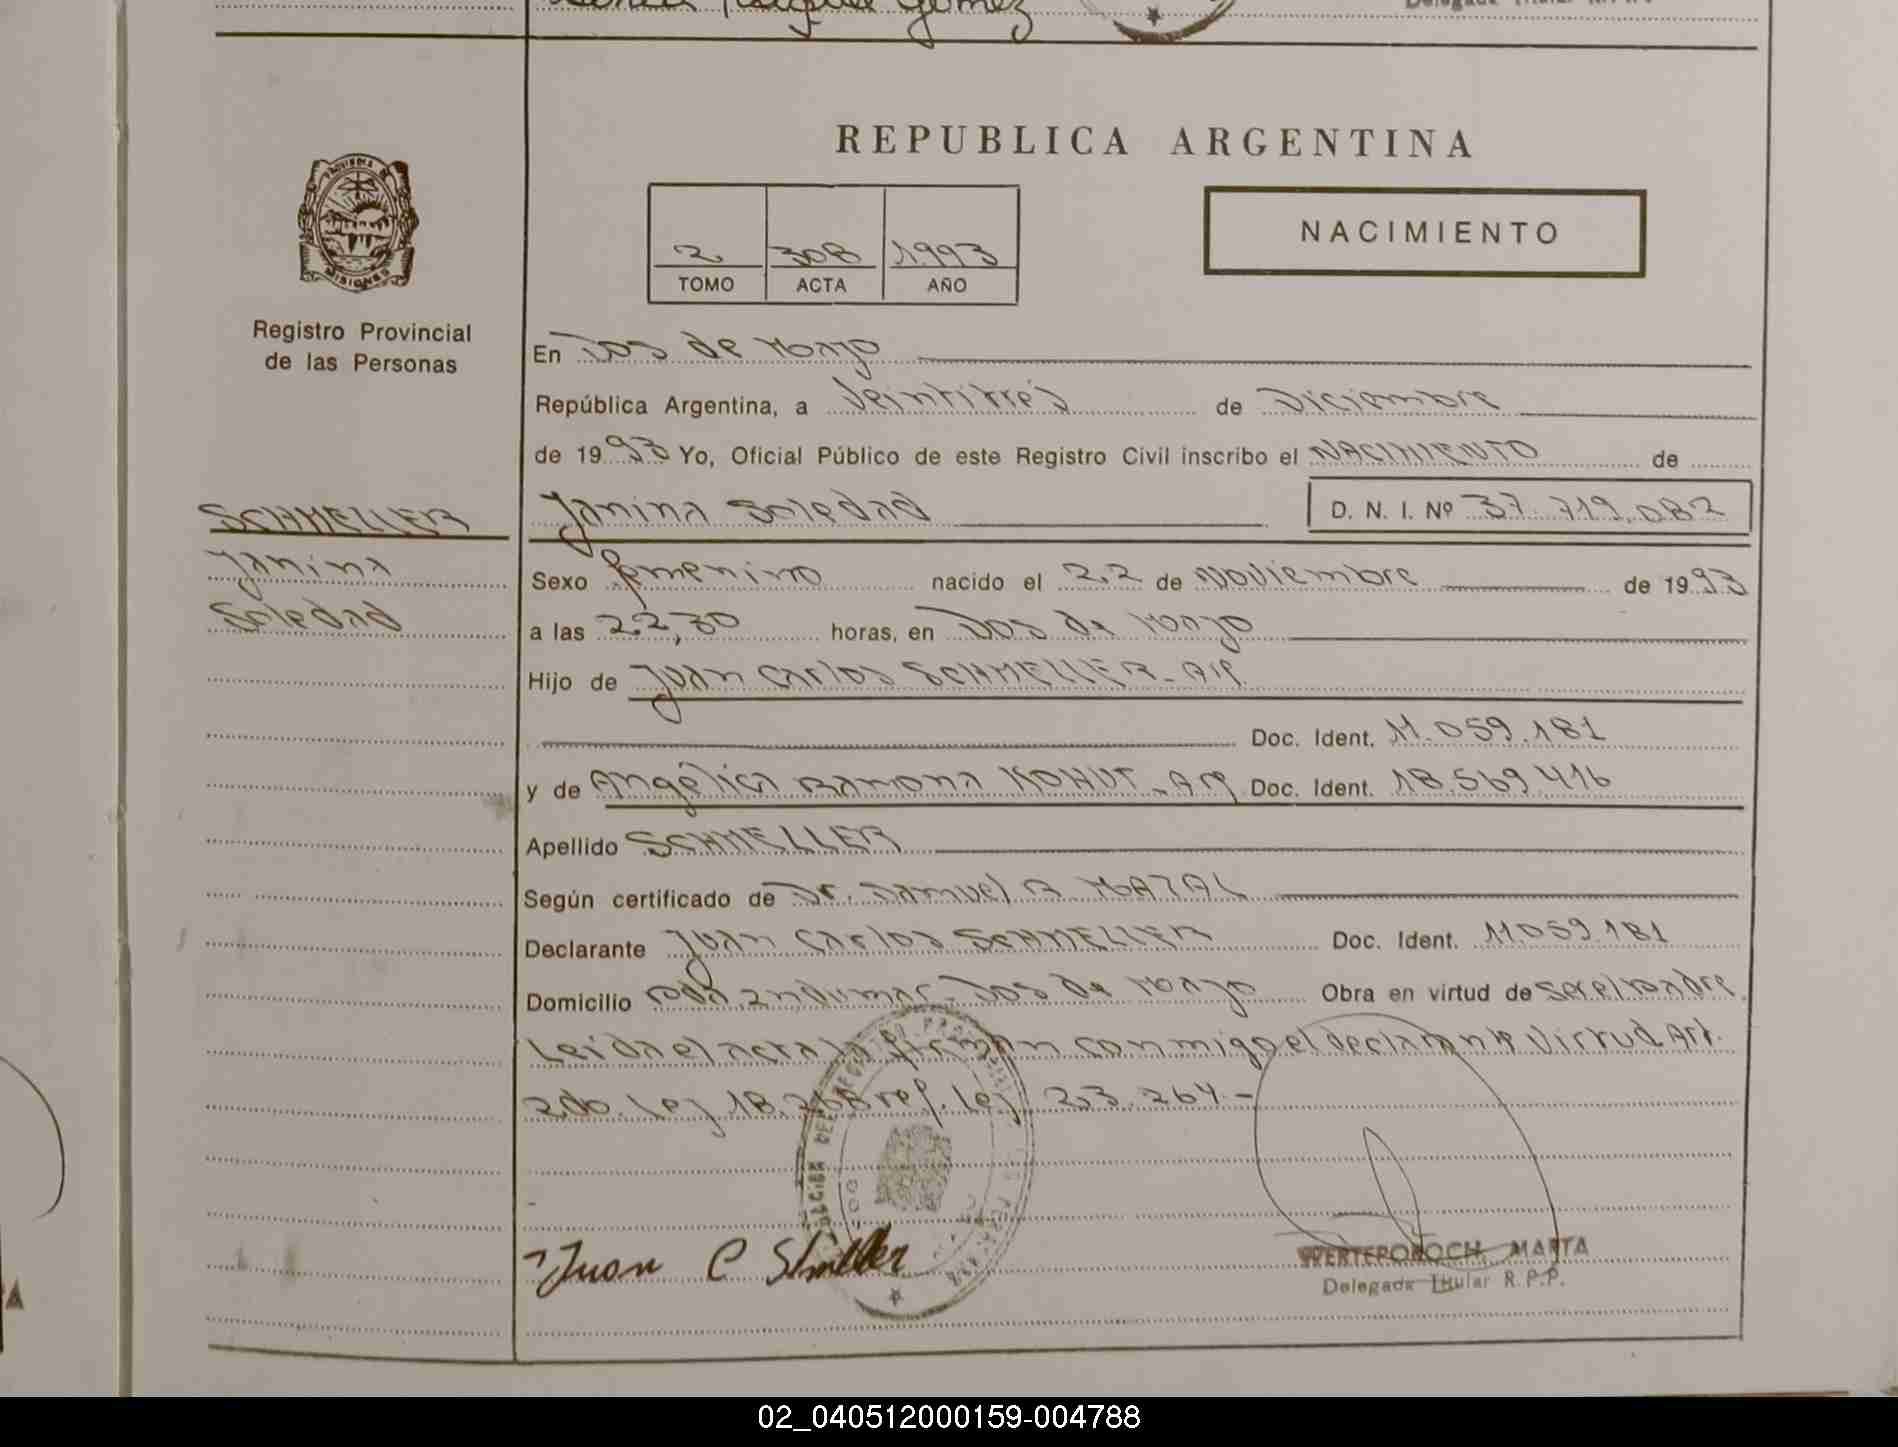 REPUBLICA ARGENTINA
PROVINCIA DE
MISIONES
Registro Provincial
de las Personas
2 308 1993
TOMO ACTA AÑO
NACIMIENTO
En Dos de Mayo
República Argentina, a Veintitrés de Diciembre
de 1993 Yo, Oficial Público de este Registro Civil inscribo el NACIMIENTO de
SCHMELLER
Janina Soledad D. N. I. Nº 37.719.082
Janina
Sexo femenino nacido el 22 de Noviembre de 1993
Soledad
a las 22,30 horas, en Dos de Mayo
Hijo de Juan Carlos SCHMELLER - Arg.
Doc. Ident. 11.059.181
y de Angélica Ramona KOHUT - Arg. Doc. Ident. 18.569.416
Apellido SCHMELLER
Según certificado de Dr. Samuel R. MAZAL
Declarante Juan Carlos SCHMELLER Doc. Ident. 11.059.181
Domicilio Dos de Mayo Obra en virtud de ser el padre.
Leida el acta la firman conmigo el declarante Virtud Art.
2do. Ley 18.248 ref. Ley 23.264.-
Juan C
MARTA
Delegada Titular R.P.P.
02_040512000159-004788